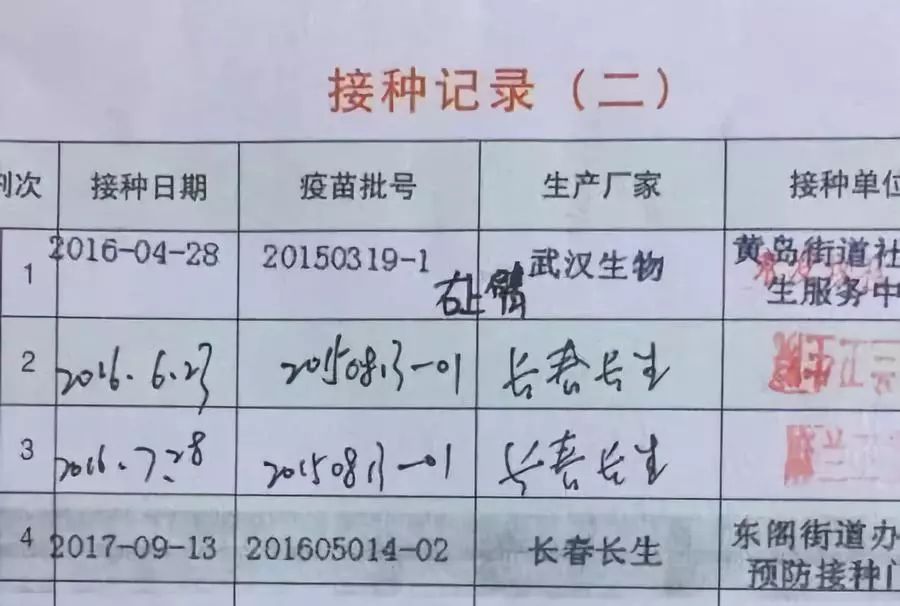 接种记录（二）
剂次 接种日期 疫苗批号 生产厂家 接种单位
1 2016-04-28 20150319-1 武汉生物 黄岛街道社
右上臂 生服务中
2 2016.6.23 20150813-01 长春长生
3 2016.7.28 20150813-01 长春长生
4 2017-09-13 201605014-02 长春长生 东阁街道办
预防接种门